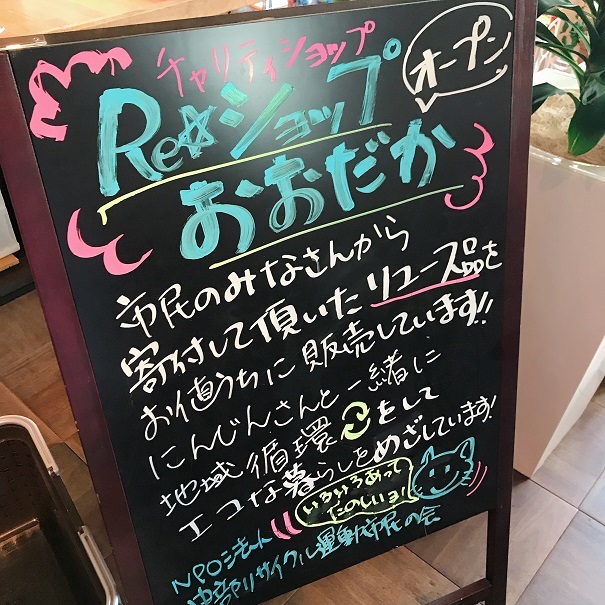 チャリティショップ
オープン
Re☆ショップ
おおだか
市民のみなさんから
寄付して頂いたリユース品を
お値うちに販売しています!!
にんじんさんと一緒に
地域循環をして
エコな暮らしをめざしています!
いろいろあって
たのしいヨ!
NPO
中部リサイクル運動市民の会